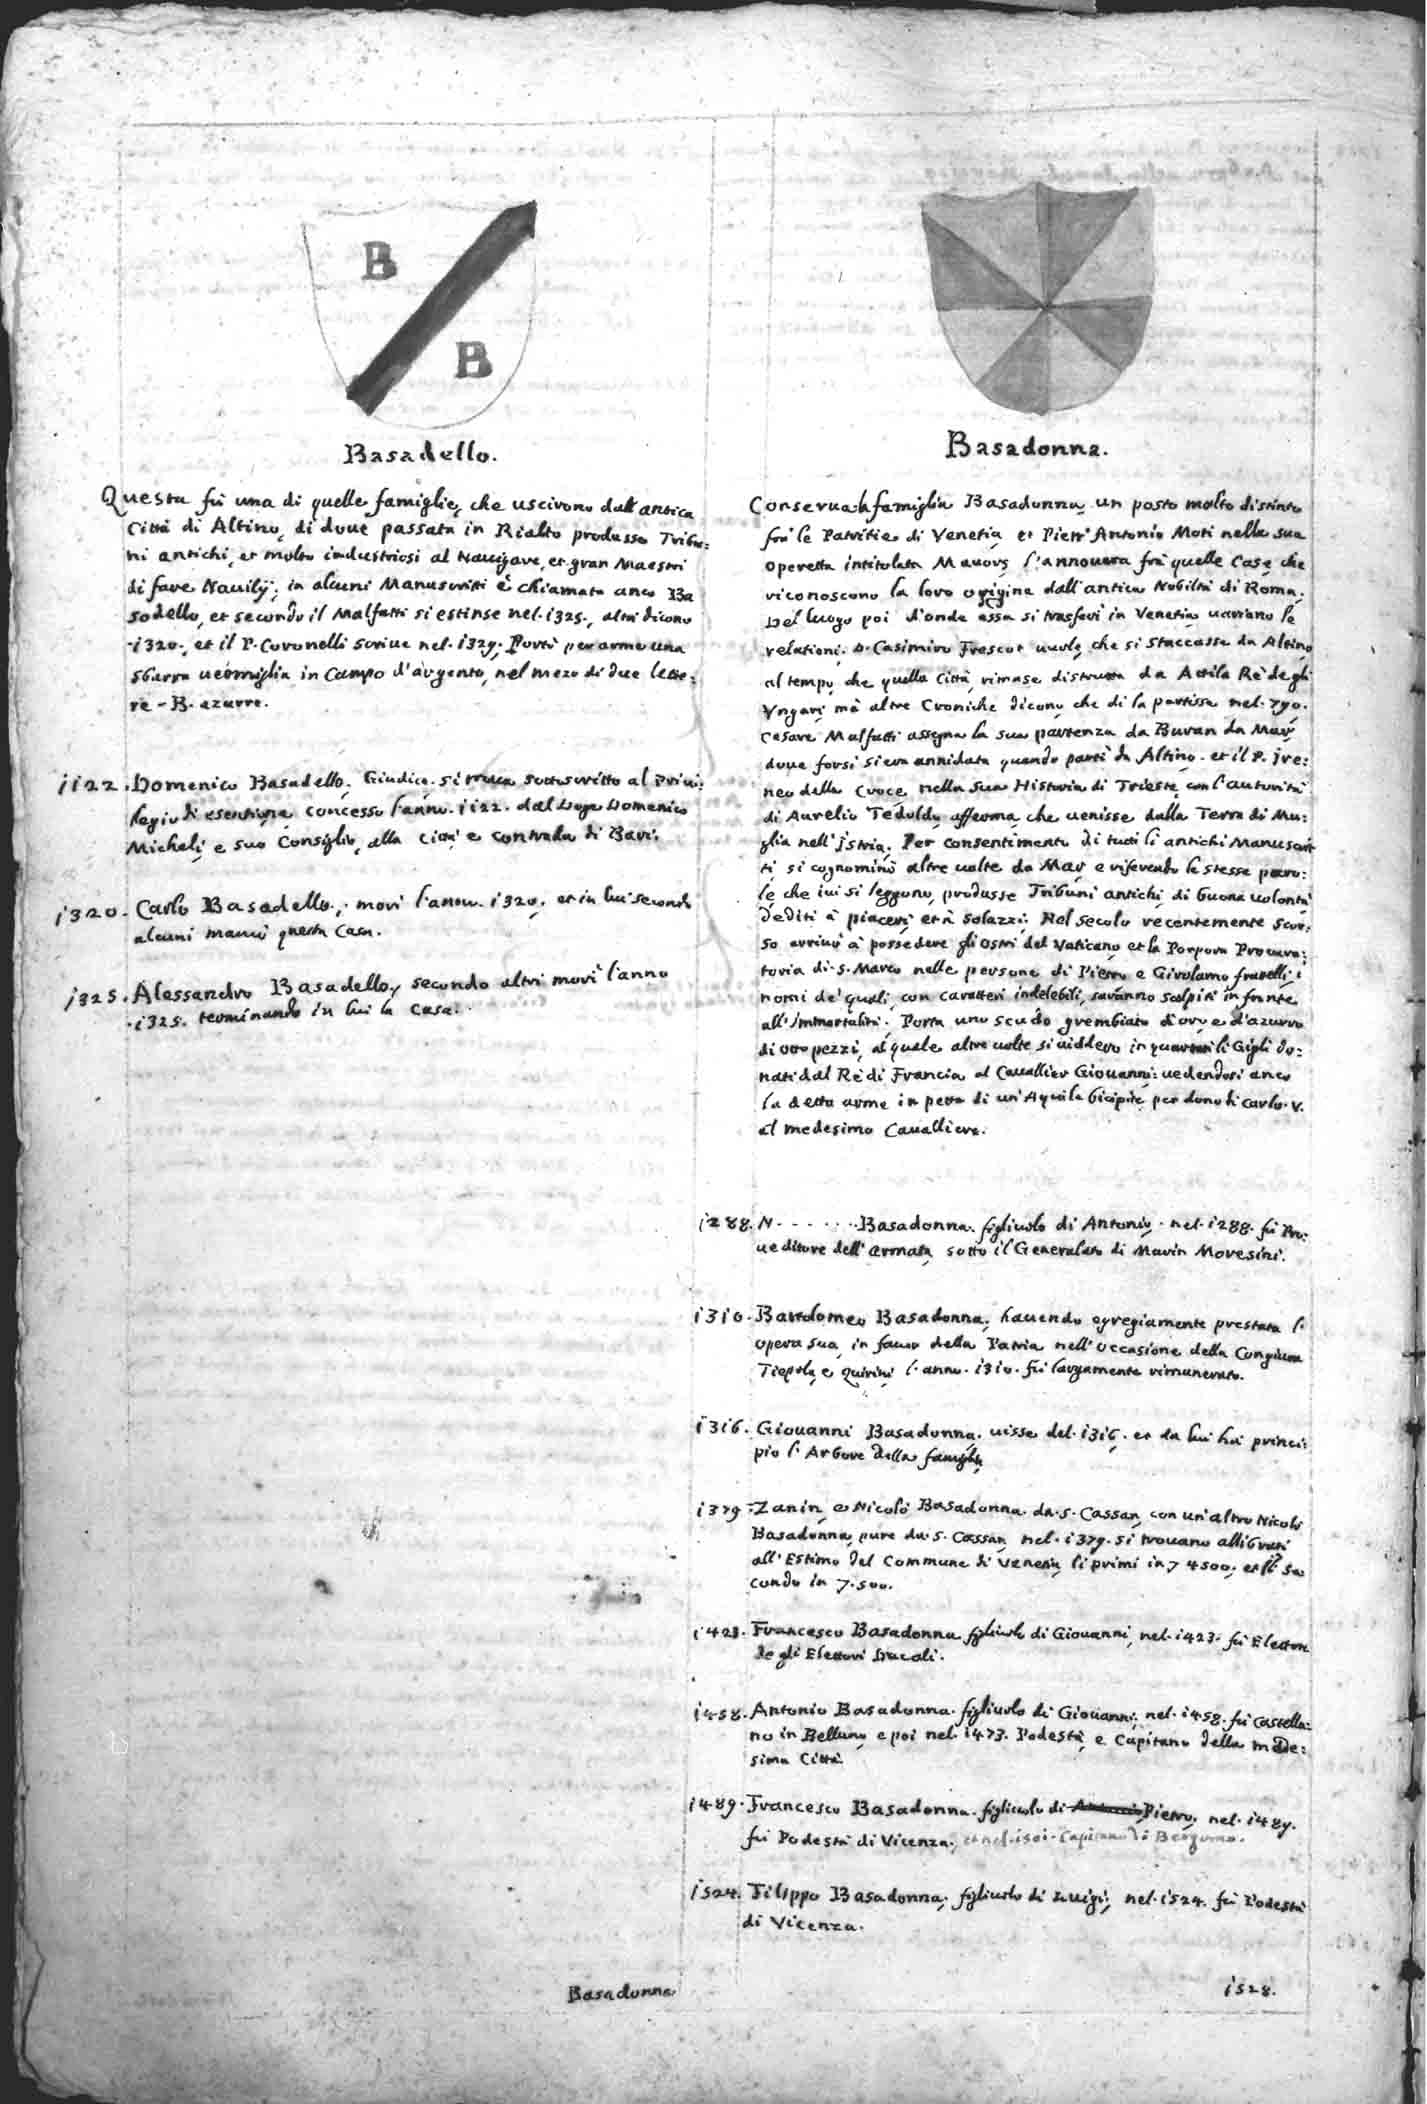 B
B
Basadello.
Questa fù una di quelle famiglie, che uscirono dall'antica
Città di Altino, di doue passata in Rialto produsse Tribu:
ni antichi, et molto industriosi al Nauigare, et gran Maestri
di fare Nauilÿ; in alcuni Manuscritti è chiamata anco Ba
sodello, et secondo il Malfatti si estinse nel. 1325., altri dicono
.1320., et il P. Coronelli scriue nel. 1329. Portò per arme una
sbarra uermiglia in Campo d'argento, nel mezo di due lette:
re - B. azurre.
1122. Domenico Basadello. Giudice. si troua sottoscritto al Priui:
legio di esentione concesso l'anno. 1122. dal Doge Domenico
Micheli, e suo Consiglio, alla Città e contrada di Bari.
1320. Carlo Basadello., morì l'anno. 1320., et in lui secondo
alcuni mancò questa Casa.
1325. Alessandro Basadello, secondo altri morì l'anno
.1325. terminando in lui la Casa.
Basadonna.
Conserua la famiglia Basadonna, un posto molto distinto
frà le Patritie di Venetia, et Pietr'Antonio Moti nella sua
operetta intitolata Mauors, l'annouera frà quelle Case, che
riconoscono la loro origine dall'antica Nobiltà di Roma.
Del luogo poi d'onde essa si trasferì in Venetia uariano le
relationi. D. Casimiro Frescot uuole, che si staccasse da Altino,
al tempo, che quella Città, rimase distrutta da Attila Rè degli
Vngari, mà altre Croniche dicono, che di la partisse nel. 790.
Cesare Malfatti assegna la sua partenza da Buran da Mar,
doue forsi si era annidata quando partì da Altino. et il P. Ire:
neo della Croce, nella sua Historia di Trieste, con l'autorità
di Aurelio Tedoldo, afferma, che uenisse dalla Terra di Mu:
glia nell'Istria. Per consentimento di tutti li antichi Manuscrit
ti, si cognominò altre uolte da Mar, e riferendo le stesse paro:
le che iui si leggono, produsse Tribuni antichi di buona uolontà
dediti à piaceri, et à solazzi. Nel secolo recentemente scor:
so arriuò à possedere gli ostri del Vaticano, et la Porpora Procura:
toria di. S. Marco nelle persone di Pietro e Girolamo fratelli, i
nomi de' quali, con caratteri indelebili, saranno scolpiti in fronte
all'Immortalità. Porta uno scudo grembiato d'oro e d'azurro
di otto pezzi, al quale altre uolte si uiddero inquartati li Gigli do:
nati dal Rè di Francia al Cauallier Giouanni: uedendosi anco
la detta arme in petto di un'Aquila bicipite, per dono di Carlo. V.
al medesimo Caualliere.
1288. N. . . . . . . Basadonna. figliuolo di Antonio. nel. 1288. fù Pro:
ueditore dell'armata, sotto il Generalato di Marin Moresini.
1310. Bartolomeo Basadonna, hauendo egregiamente prestata l'
opera sua, in fauor della Patria nell'occasione della Congiura
Tiepola, e Quirini l'anno. 1310. fù largamente rimunerato.
1316. Giouanni Basadonna. uisse del. 1316. et da lui hà princi:
pio l'Arbore della famiglia
1379. Zanin, e Nicolò Basadonna. da. S. Cassan, con un'altro Nicolò
Basadonna, pure da. S. Cassan, nel. 1379. si trouano allibrati
all'Estimo del Commune di Venetia, li primi in 7 4500. et il se
condo in 7. 500.
1423. Francesco Basadonna figliuolo di Giouanni, nel. 1423. fù Elettore
de gli Elettori Ducali.
1458. Antonio Basadonna. figliuolo di Giouanni, nel. 1458. fù Castella:
no in Belluno, e poi nel. 1473. Podestà, e Capitano della mede:
sima Città.
1489. Francesco Basadonna. figliuolo di Pietro, nel. 1489.
fù Podestà di Vicenza, et nel. 1501. Capitano di Bergamo.
1524. Filippo Basadonna, figliuolo di Luigi, nel. 1524. fù Podestà
di Vicenza.
Basadonna
1528.